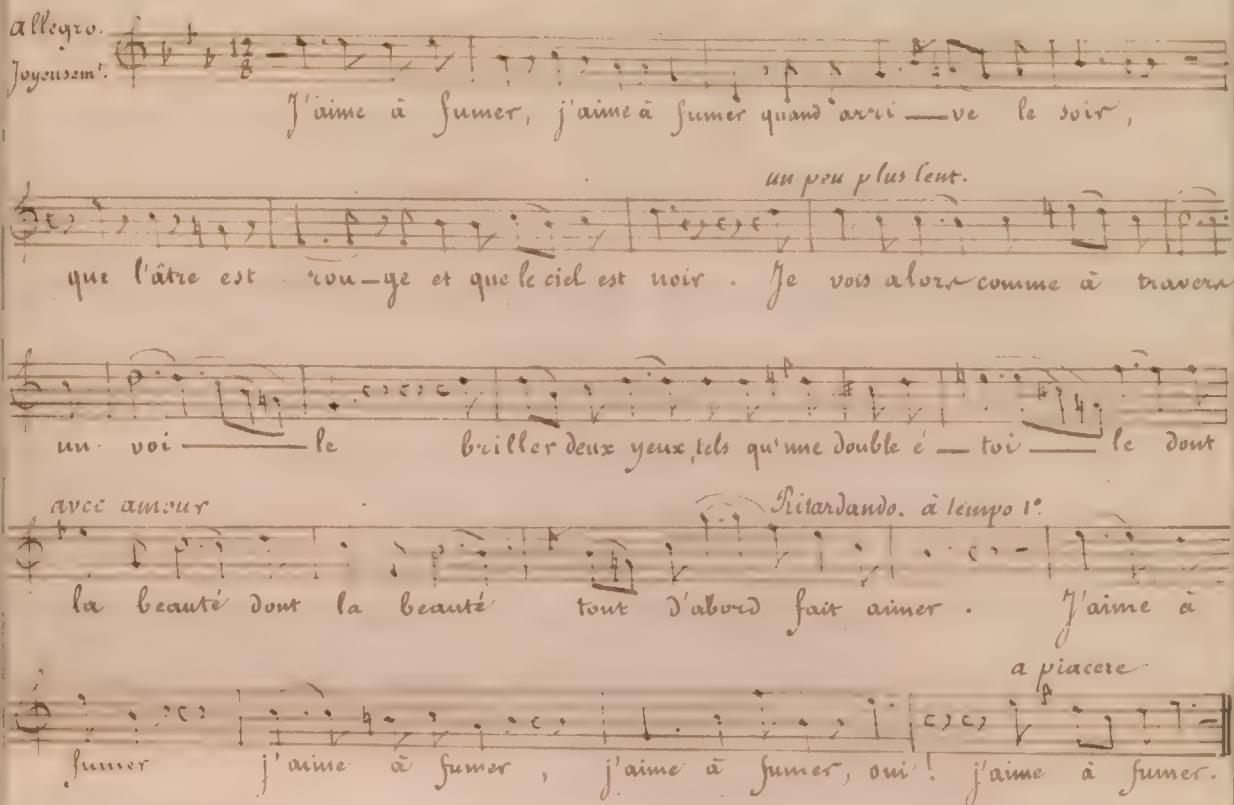 allegro.
Joyeusemt.
12
8
J'aime à fumer, j'aime à fumer quand arri — ve le soir,
un peu plus lent.
que l'âtre est rou — ge et que le ciel est noir. Je vois alors comme à travers
un voi — le briller deux yeux, tels qu'une double é — toi — le dont
avec amour Ritardando. à tempo 1o.
la beauté dont la beauté tout d'abord fait aimer. J'aime à
a piacere
fumer j'aime à fumer, j'aime à fumer, oui! j'aime à fumer.